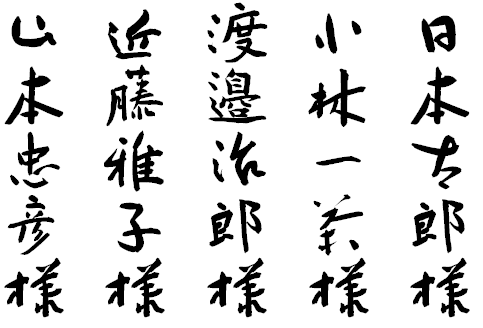 日本太郎様
小林一美様
渡邉治郎様
近藤雅子様
山本忠彦様